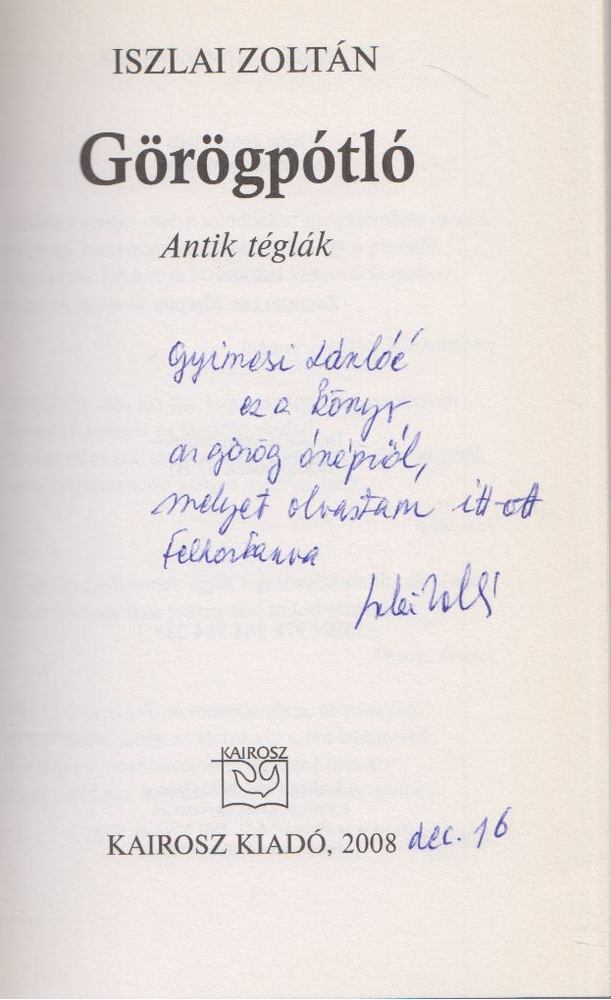 ISZLAI ZOLTÁN
Görögpótló
Antik téglák
Gyimesi Lászlóé
ez a könyv
az görög ónépről,
melyet olvastam itt-ott
felhorkanva
Iszlai Zoltán
KAIROSZ
KAIROSZ KIADÓ, 2008 dec. 16